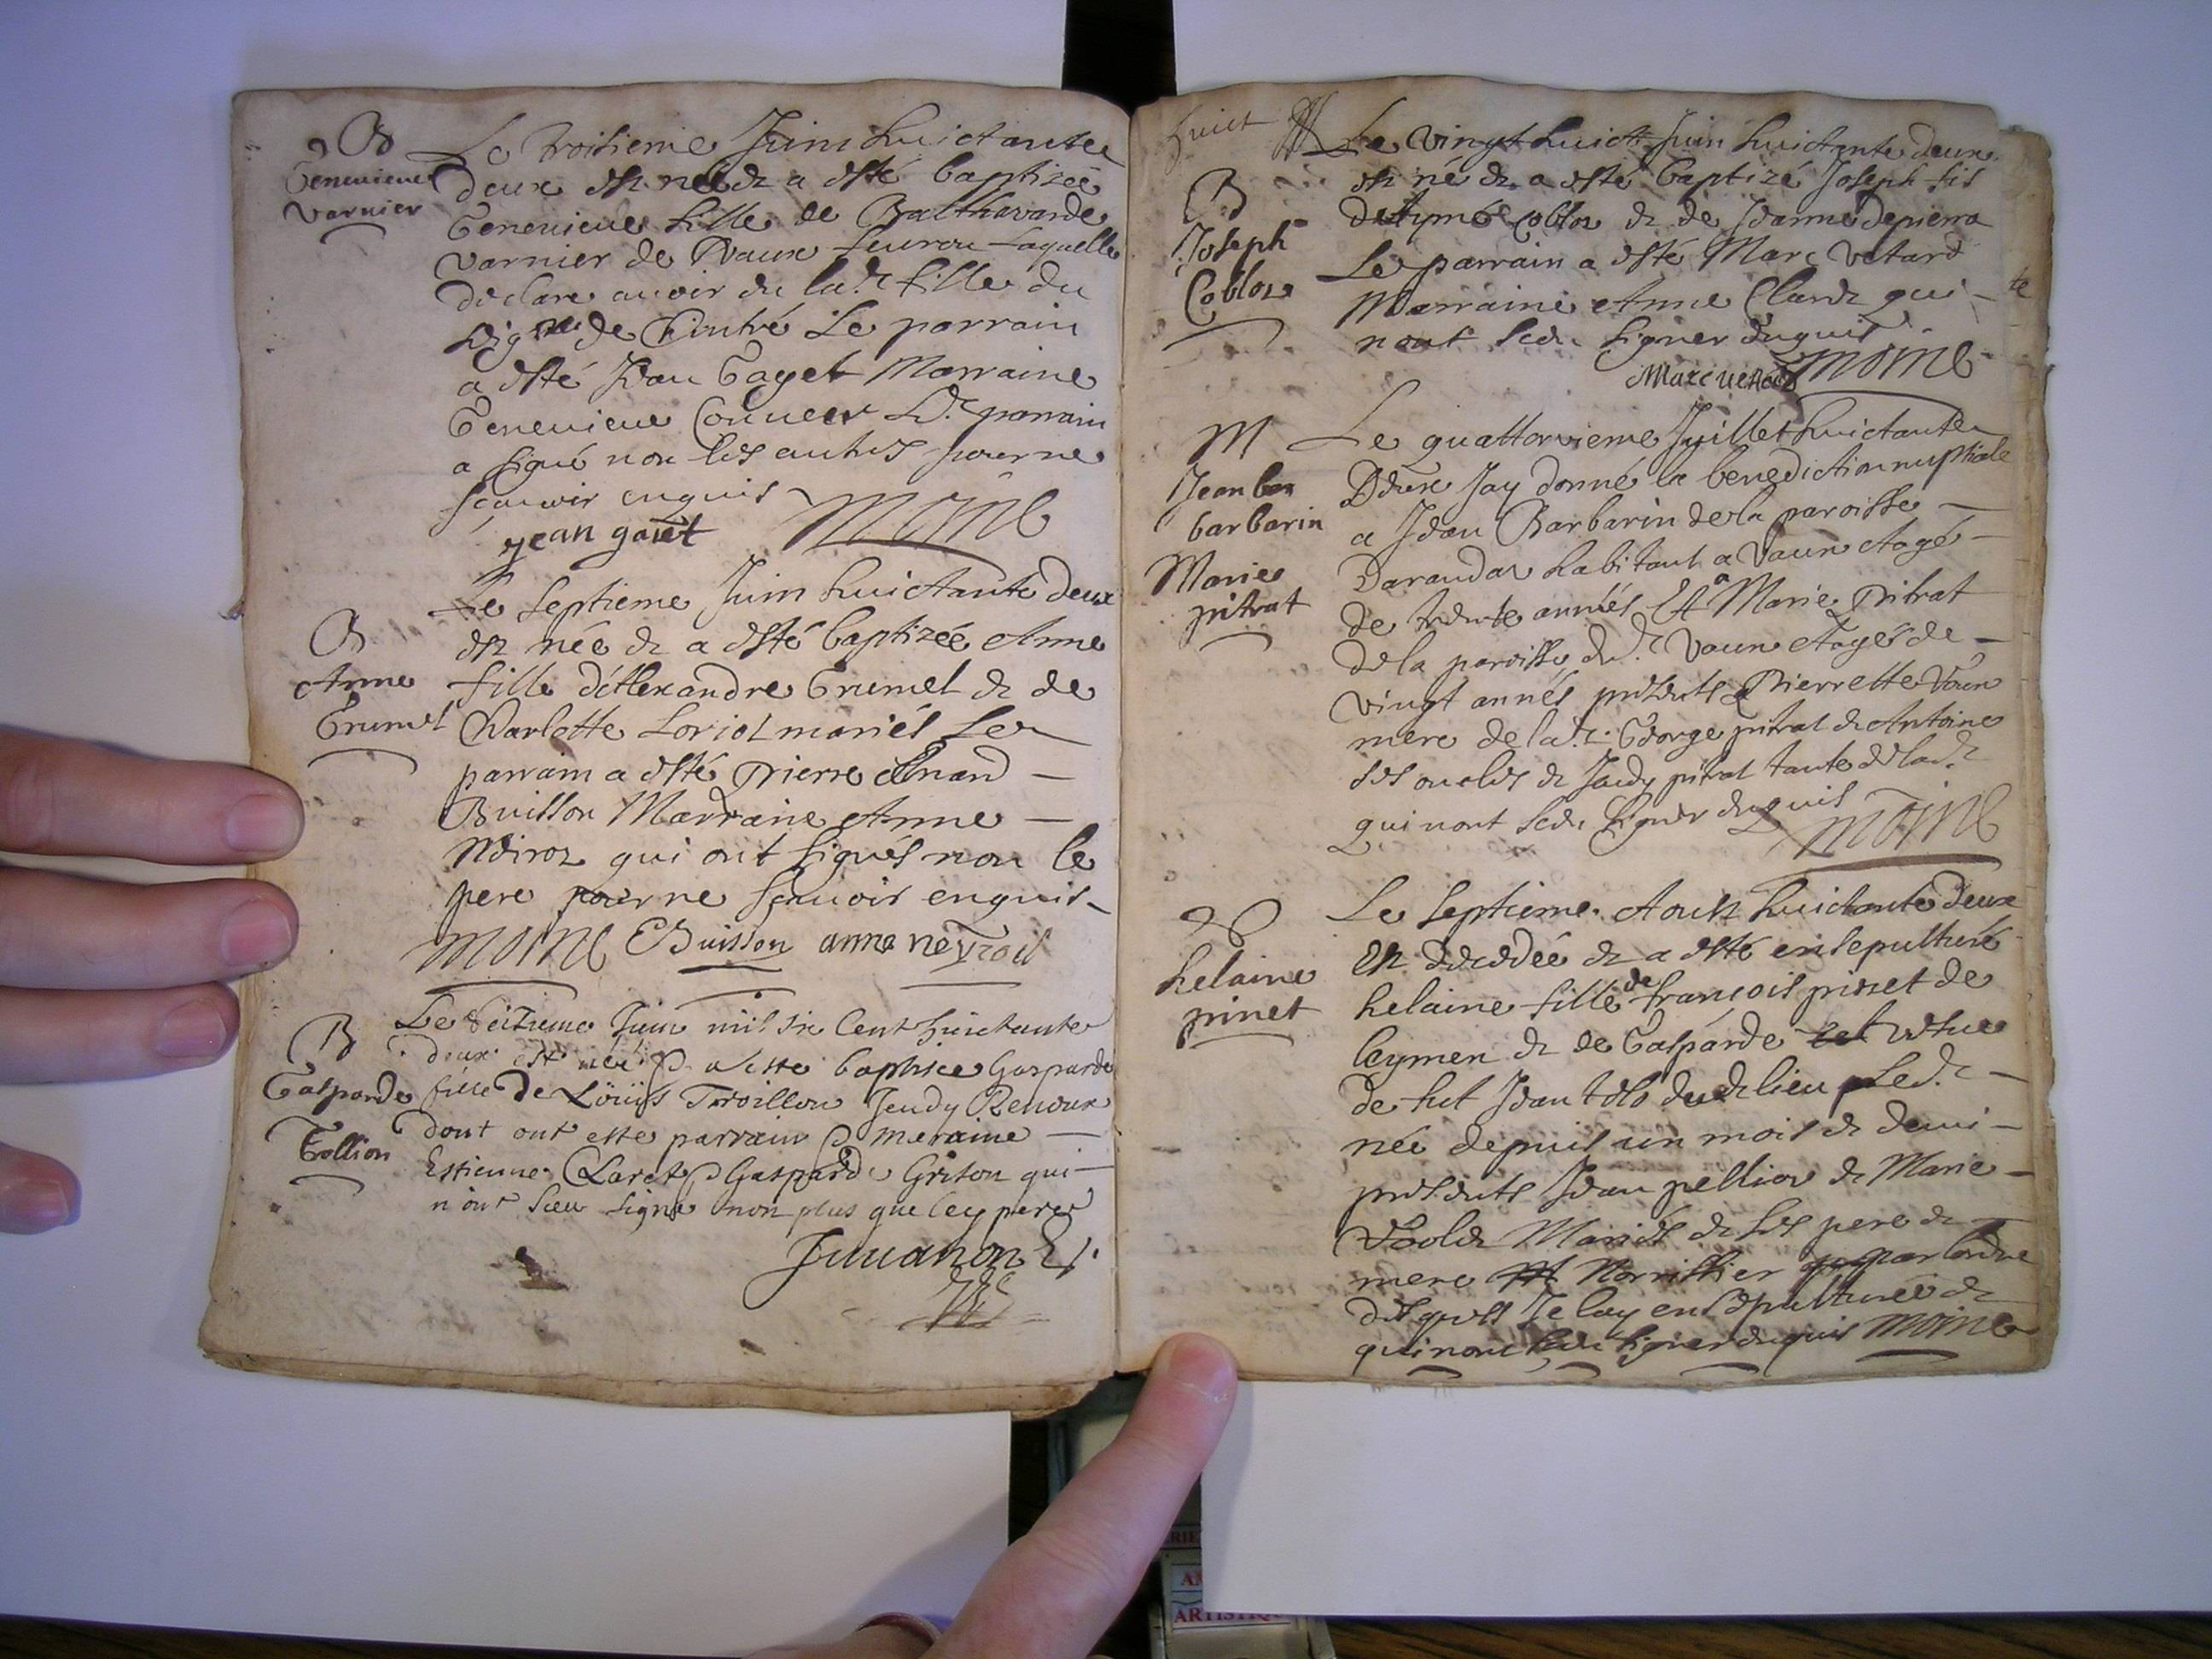 B
Genevieve
varnier
Le troisieme Juin huictante
deux est née & a esté baptizée
Genevieve fille de Balthazarde
varnier de Vaux laquelle
declare avoir eu lad.e fille du
de Le parrain
a esté Jean Gayet Marraine
Genevieve L.d parrain
a signé non les autres pour ne
scavoir enquis
jean gaiet Moine
Le septieme Juin huictante deux
B
Anne
Grumel
est née & a esté baptizée Anne
fille d'Alexandre Grumel & de
Charlotte Loriol mariés Le
parrain a esté Pierre
Buisson Marraine Anne
Neiroz qui ont signés non le
pere pour ne scavoir enquis
Moine Buisson anne neyroil
B
Gasparde
Tollion
Le Seizieme Juin mil six Cent huictante
deux est née & a este baptisee Gasparde
fille de Loüis Troillon Jeudy
dont ont este parrain & maraine
Estienne Claret & Gasparde Grison qui
n'ont sceu signe non plus que le pere
Juuanon
huict
B
Joseph
Coblor
Le vingt huict Juin huictante deux
est né & a esté baptizé Joseph fis
Coblor & de Jeanne depierra
Le parrain a esté Marc vetard
Marraine Anne Claret qui
nont sceu signer enquis
Marc vetard Moine
M
Jean bar
barbarin
Marie
pitrat
Le quattorzieme Juillet huictante
Deux Jay donné la benediction nuptiale
a Jean Barbarin de la paroisse
Darandas habitant a Vaux Aagé
de trente années Et a Marie Pitrat
de la paroisse dud. Vaux Aagée de
vingt annés presents Pierrette
mere de lad.e George pitrat & Antoine
ses oncles & Jeudy pitrat tante de lad.e
qui nont sceu signer enquis Moine
helaine
pinet
Le septieme Aoust huictante deux
Est decedée & a esté ensepulturé
helaine fille de francois pinet de
leymen & de Gasparde vefue
de fut Jean dudt lieu Led.e
née depuis un mois & demi
presents Jean pellior & Marie
Mariés & ses pere &
mere Norrissier par lordre
desquels Je lay ensepulturée &
qui nont sceu signer enquis Moine